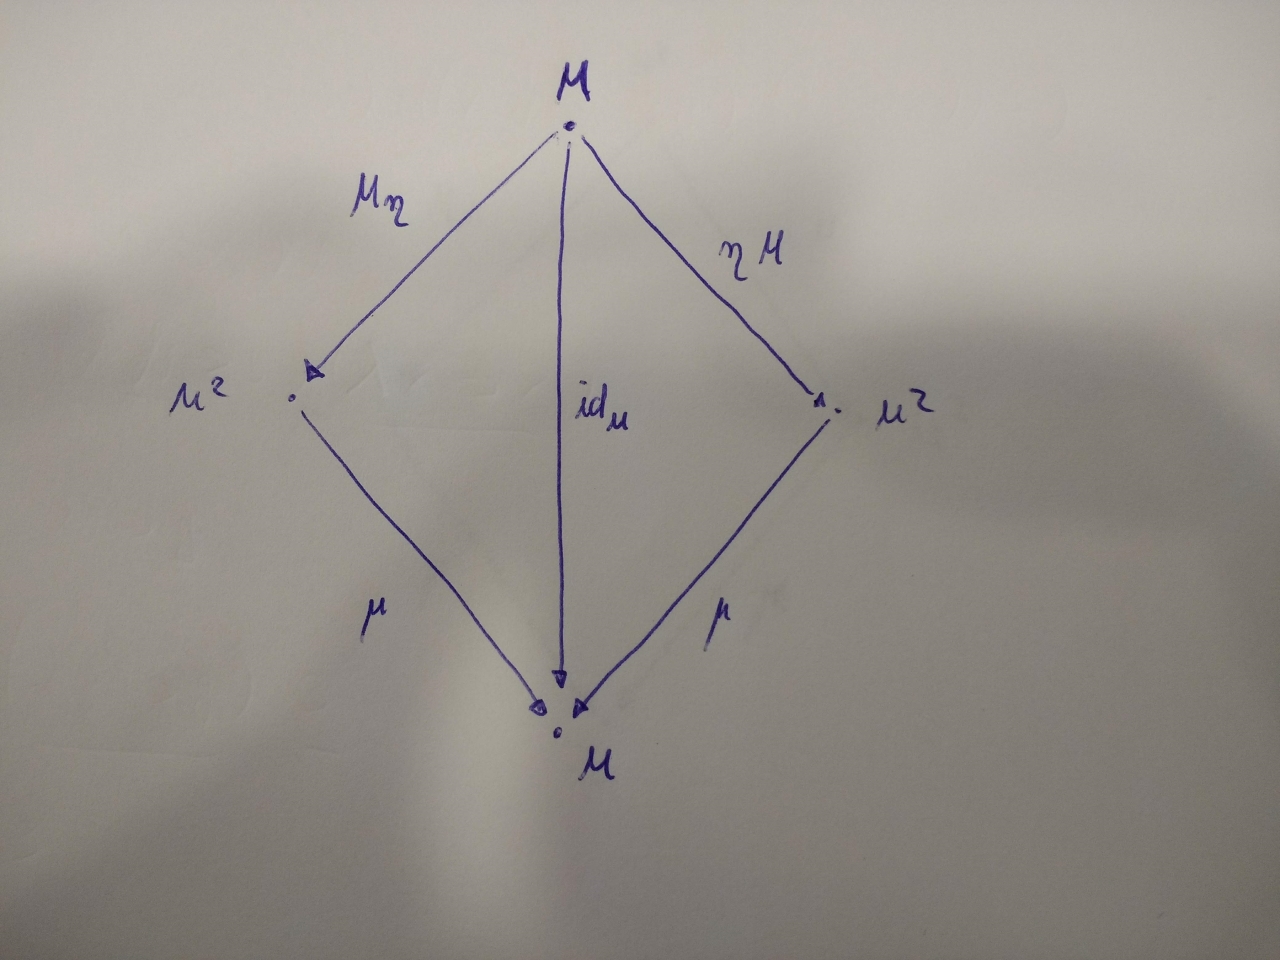 M
Mη
ηM
M²
id_M
M²
μ
μ
M